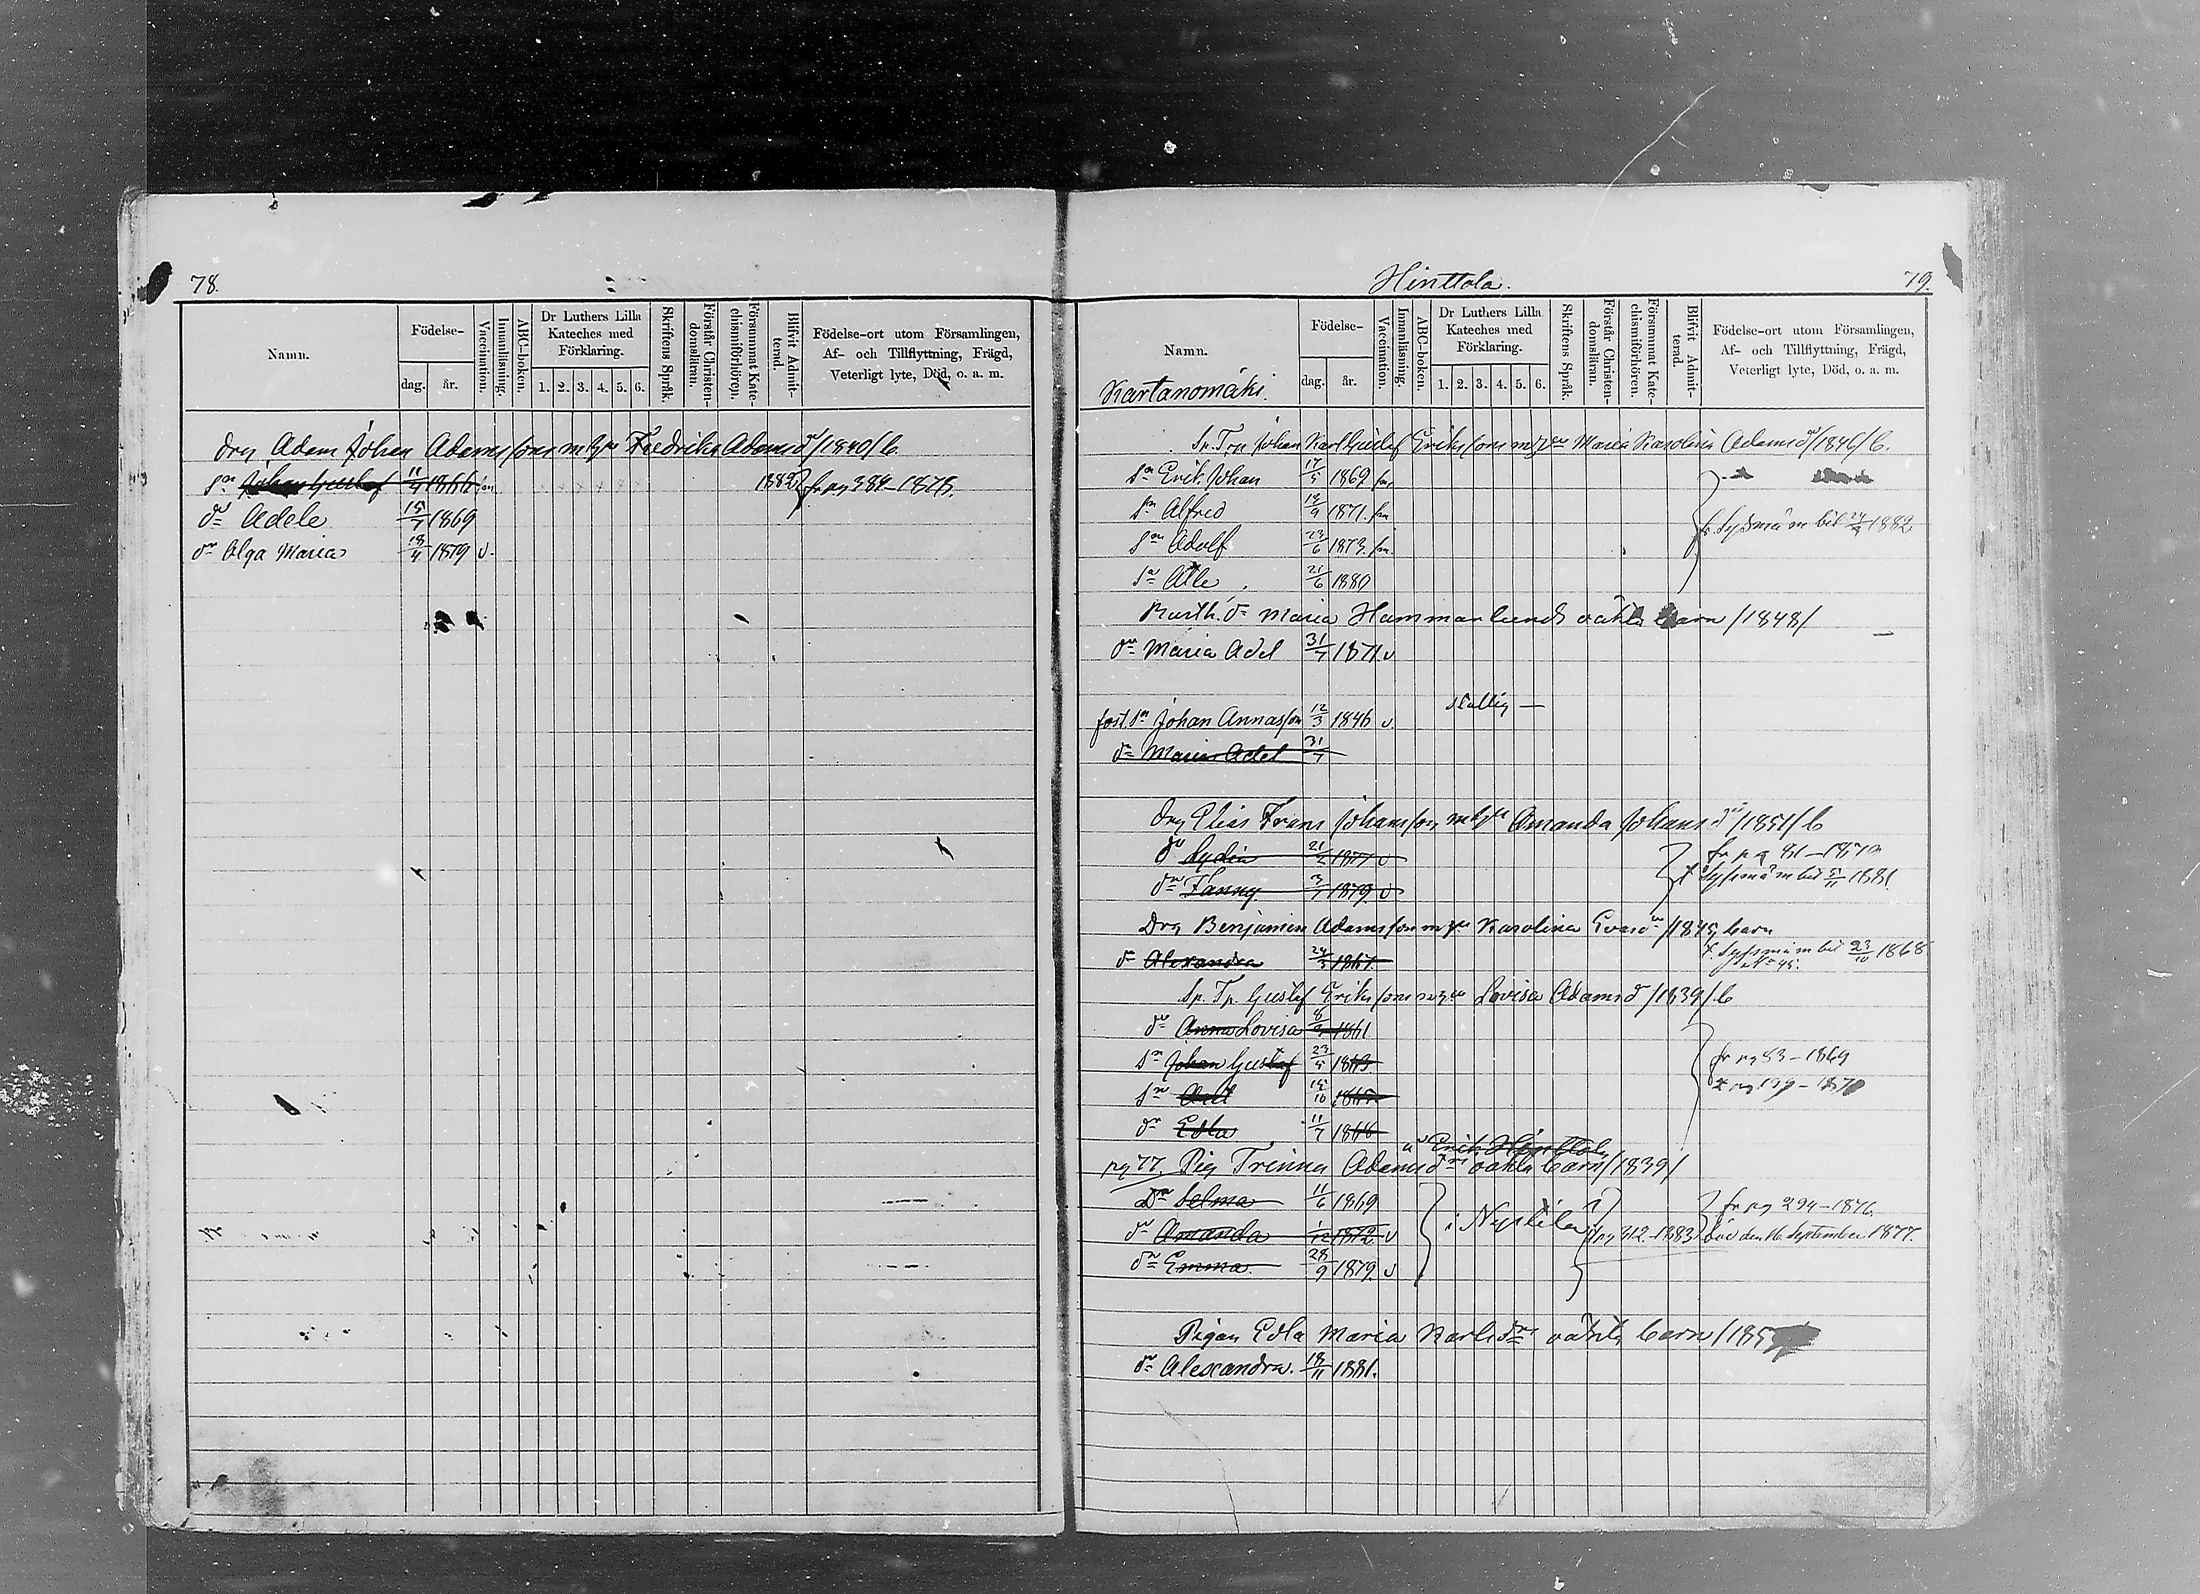 78.
Namn.
Födelse-
dag. år.
Vaccination.
Innanläsning.
ABC-boken.
Dr Luthers Lilla Kateches med Förklaring.
1. 2. 3. 4. 5. 6.
Skriftens Språk.
Förstår Christendomsläran.
Försummat Katechismiförhören.
Blifvit Admitterad.
Födelse-ort utom Församlingen, Af- och Tillflyttning, Frägd, Veterligt lyte, Död, o. a. m.
Drg Adam Johan Adamssons m hu Fredrika Adamsdr /1840/ b.
sn Johan Gustaf 11/9 1866 1882 fr pg 384–1878.
dr Adele 15/7 1869
dr Olga Maria 18/4 1879 v.
Hinttola.
79.
Namn.
Födelse-
dag. år.
Vaccination.
Innanläsning.
ABC-boken.
Dr Luthers Lilla Kateches med Förklaring.
1. 2. 3. 4. 5. 6.
Skriftens Språk.
Förstår Christendomsläran.
Försummat Katechismiförhören.
Blifvit Admitterad.
Födelse-ort utom Församlingen, Af- och Tillflyttning, Frägd, Veterligt lyte, Död, o. a. m.
Kartanomäki.
Sp. Trp Johan Karl Gustaf Erikssons Maria Karolina Adamsdr /1846/ b.
sn Erik Johan 17/5 1869
sn Alfred 1871.
sn Adolf 23/6 1873.
fr. Sysmä m bet 1882
sn Alle 21/6 1880
dr Maria Hammarlunds oäkta barn /1848/
dr Maria Adel 31/7 1871. v
fost. sn Johan Annasson 12/3 1846 v.
dr Maria Adel 31/7
Drg Elias Frans Johansson m hu Amanda Johansdr /1851/ b
dr Lydia 21/2 1877 v fr pg 81–1879
dr Fanny 3/7 1879 v t Sysmä m bet 5/11 1881.
Drg Benjamin Adamsson Karolina Evasdr /1845, barn
dr Alexandra 1867. Sysmä m bet 23/10 1868
Sp. Tp. Gustaf Erikssons Lovisa Adamsd /1839/ b
dr Anna Lovisa 1861
sn Johan Gustaf 23/5 1863 fr pg 83–1869
sn Axel 1865 t pg 199–1870
dr Edla 11/7 1866
Erik Hinttola
pg 77. Pig Trinna Adamsdrs oäkta barn /1839/
Dr Selma 11/6 1869 fr pg 294–1876
dr Amanda 1/12 1872. v i Nystilen pg 312–1883 död den 16 September 1877.
dr Emma. 28/9 1879. v
Pigan Edla Maria Karlsdrs oäkta barn /185
dr Alexandra. 18/11 1881.